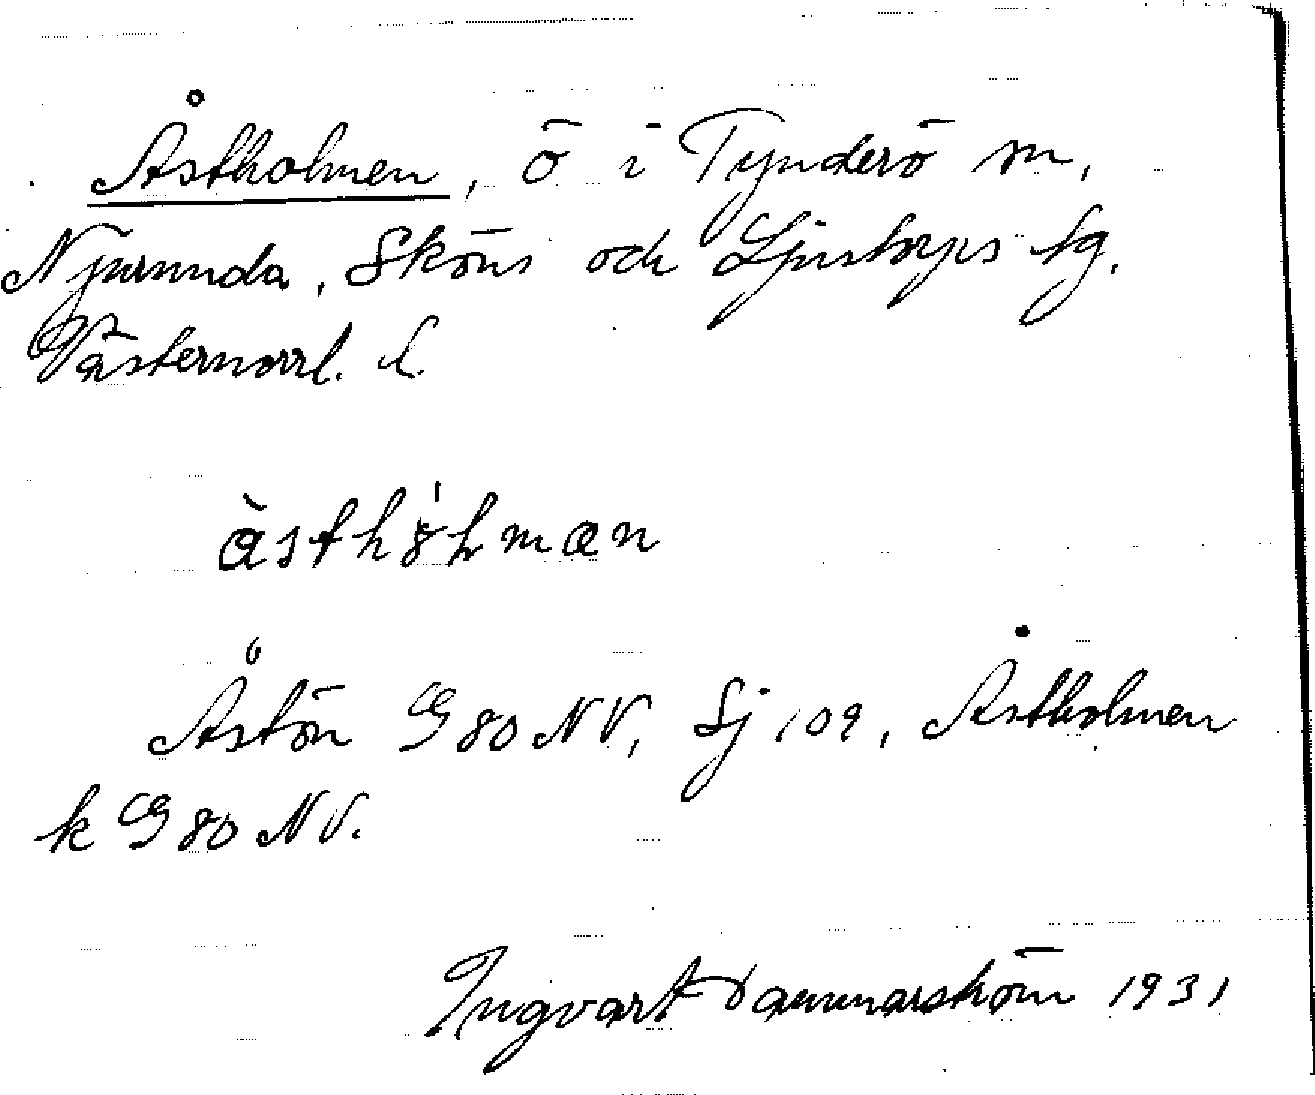 Åstholmen, ö i Tynderö sn,
Njurunda, Sköns och Ljustorps tg.
Västernorrl. l.
àsthɷ̀hman
Åstön G 80 NV, Lj 109, Åstholmen
k G 80 NV.
Ingvart Dammarström 1931